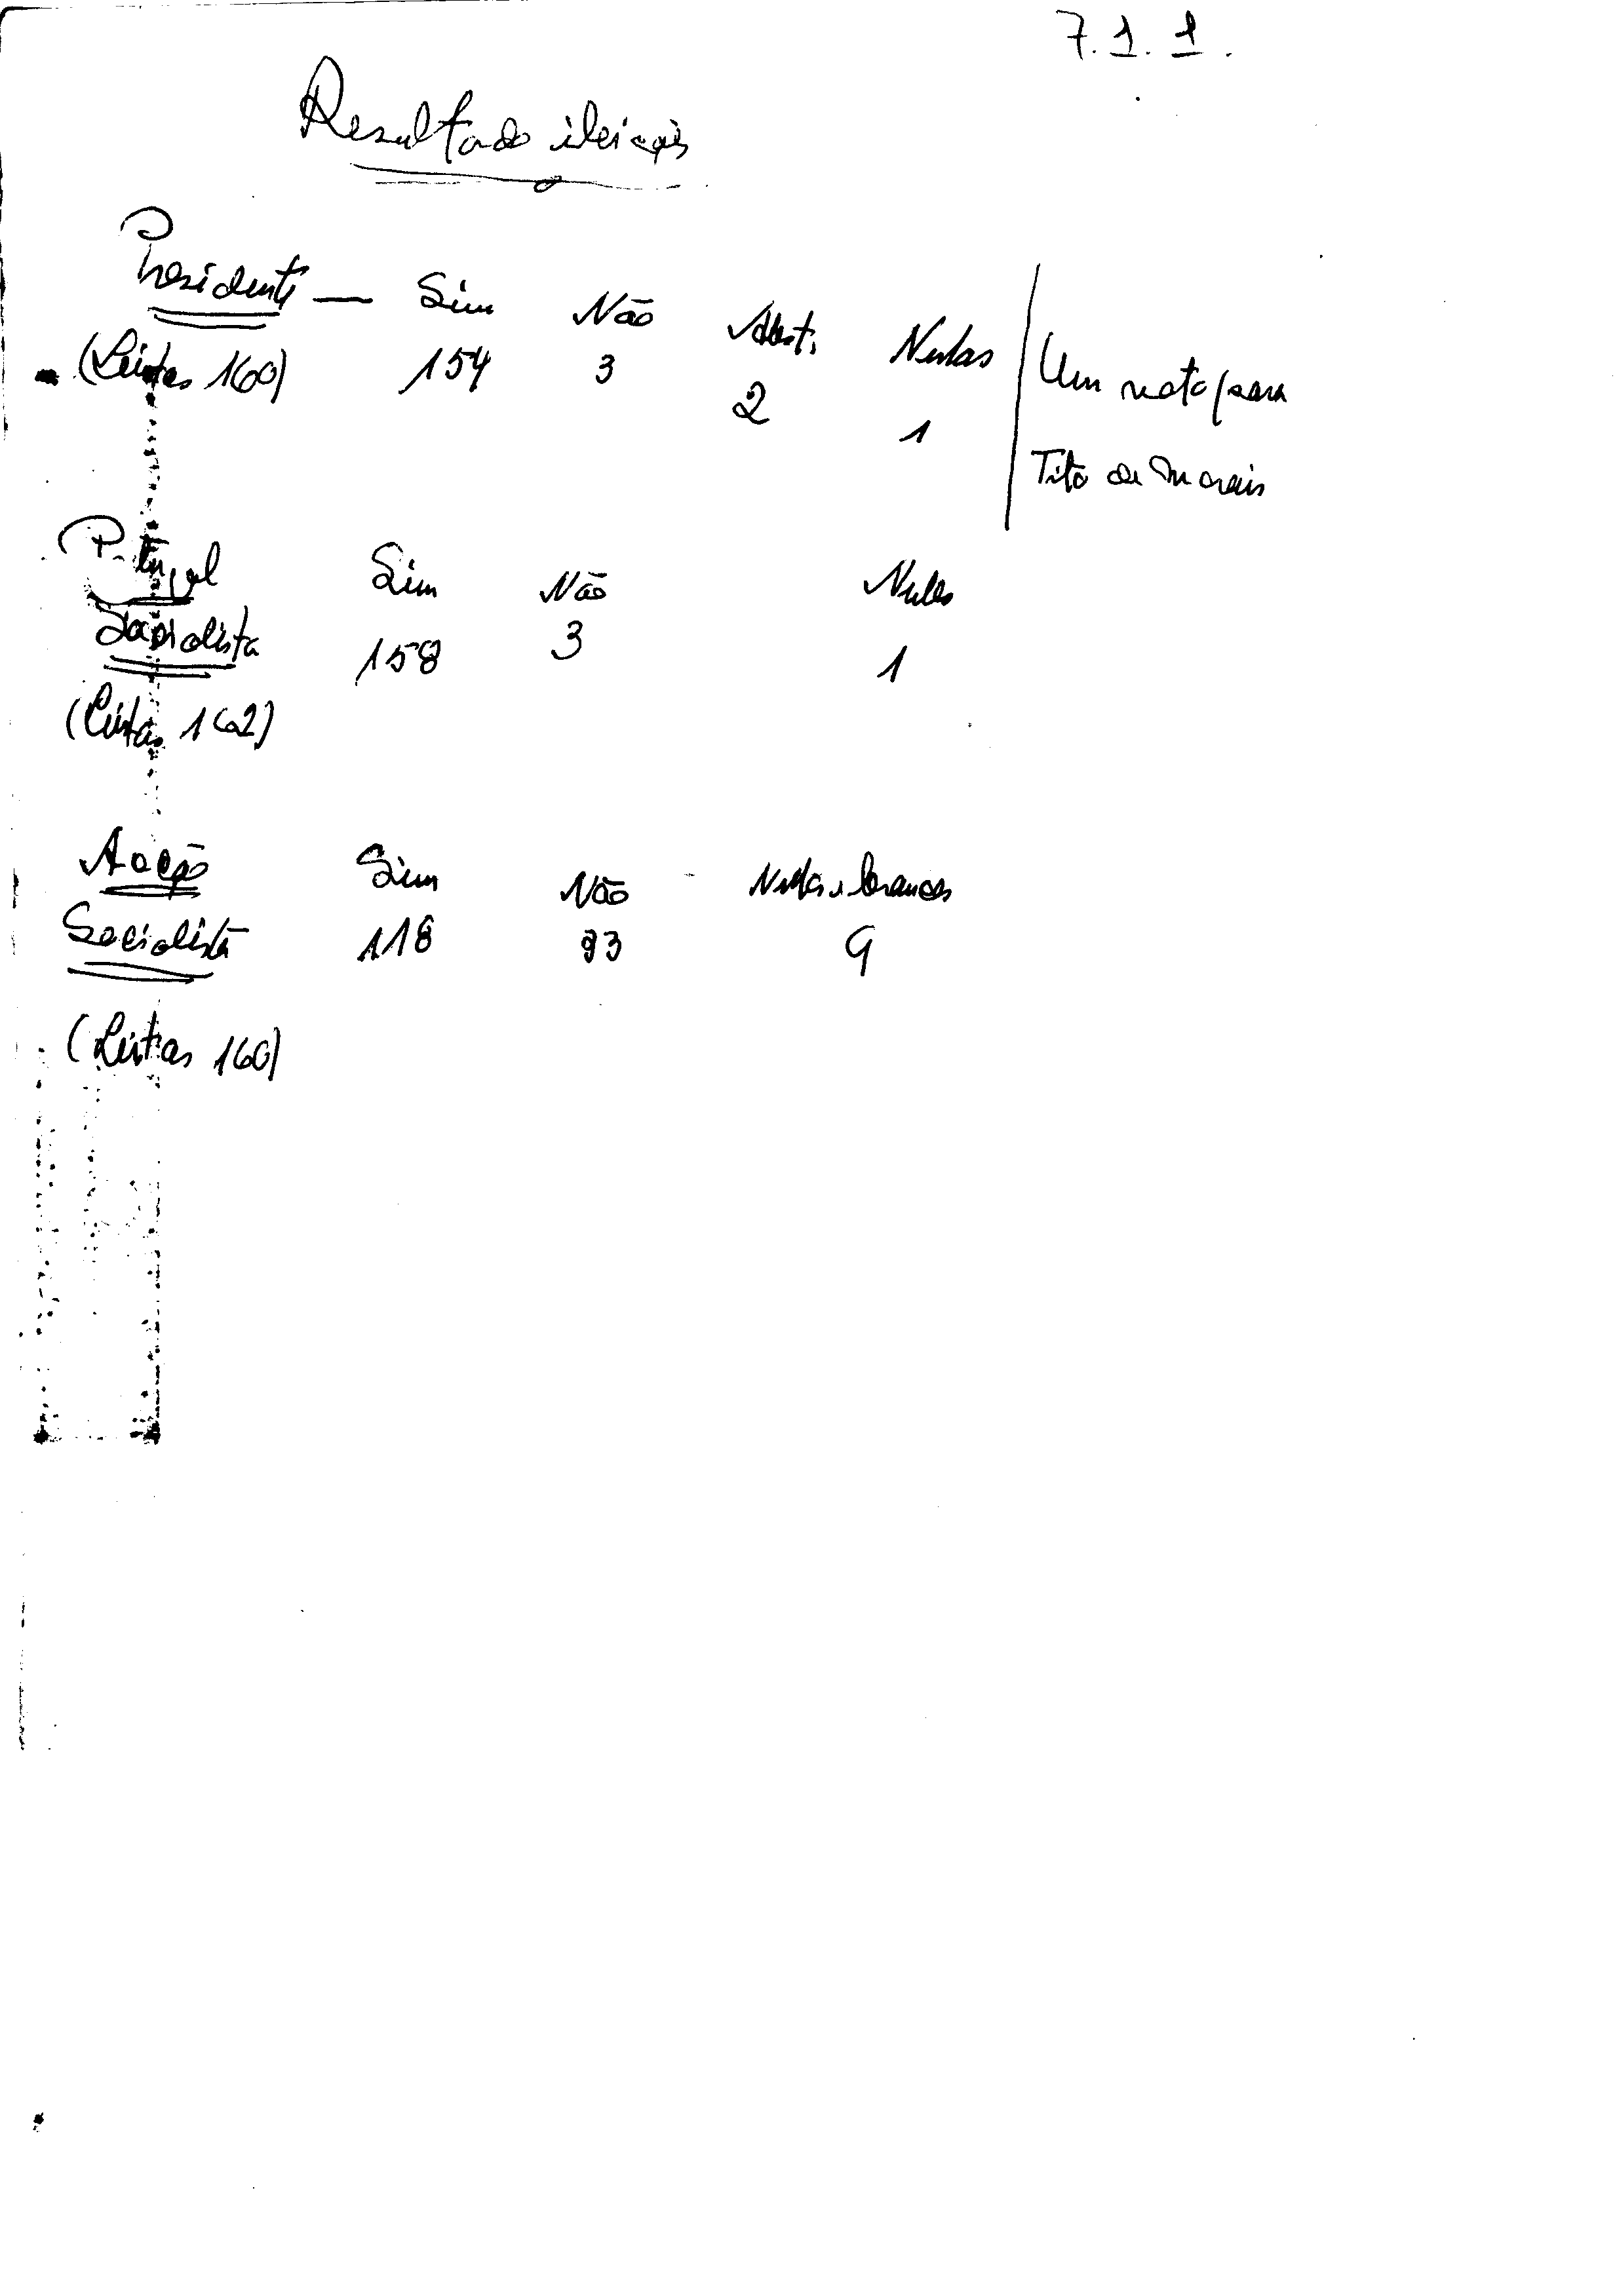 7.1.1.
Resultado eleições
Presidente — Sim Não Abst. Nulas
(Listas 160) 154 3 2 1
Um voto para
Tito de Morais
Portugal Sim Não Nulas
Socialista 158 3 1
(Listas 162)
Acção Sim Não - Nulas e brancas
Socialista 118 33 9
(Listas 160)